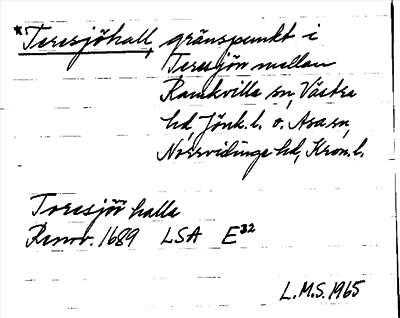 *Teresjöhall, gränspunkt i
Teresjön mellan
Ramkvilla sn, Västra
hd, Jönk.l. o. Asa sn,
Norrvidinge hd, Kron.l.
Toresjöö halla
Renov. 1689 LSA E³²
L.M.S. 1965